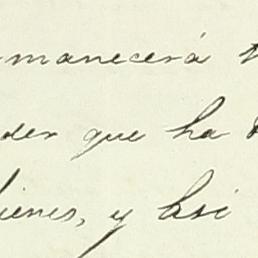 manecerá
der que ha
bienes, y así